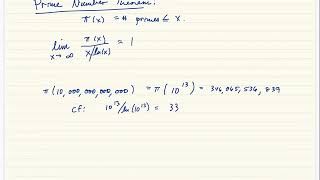 Prime Number Theorem:
π(x) = # primes ≤ x.
lim x→∞ π(x) / x/ln(x) = 1
π(10,000,000,000,000) = π(10^13) = 346,065,536,839
cf: 10^13/ln(10^13) = 33